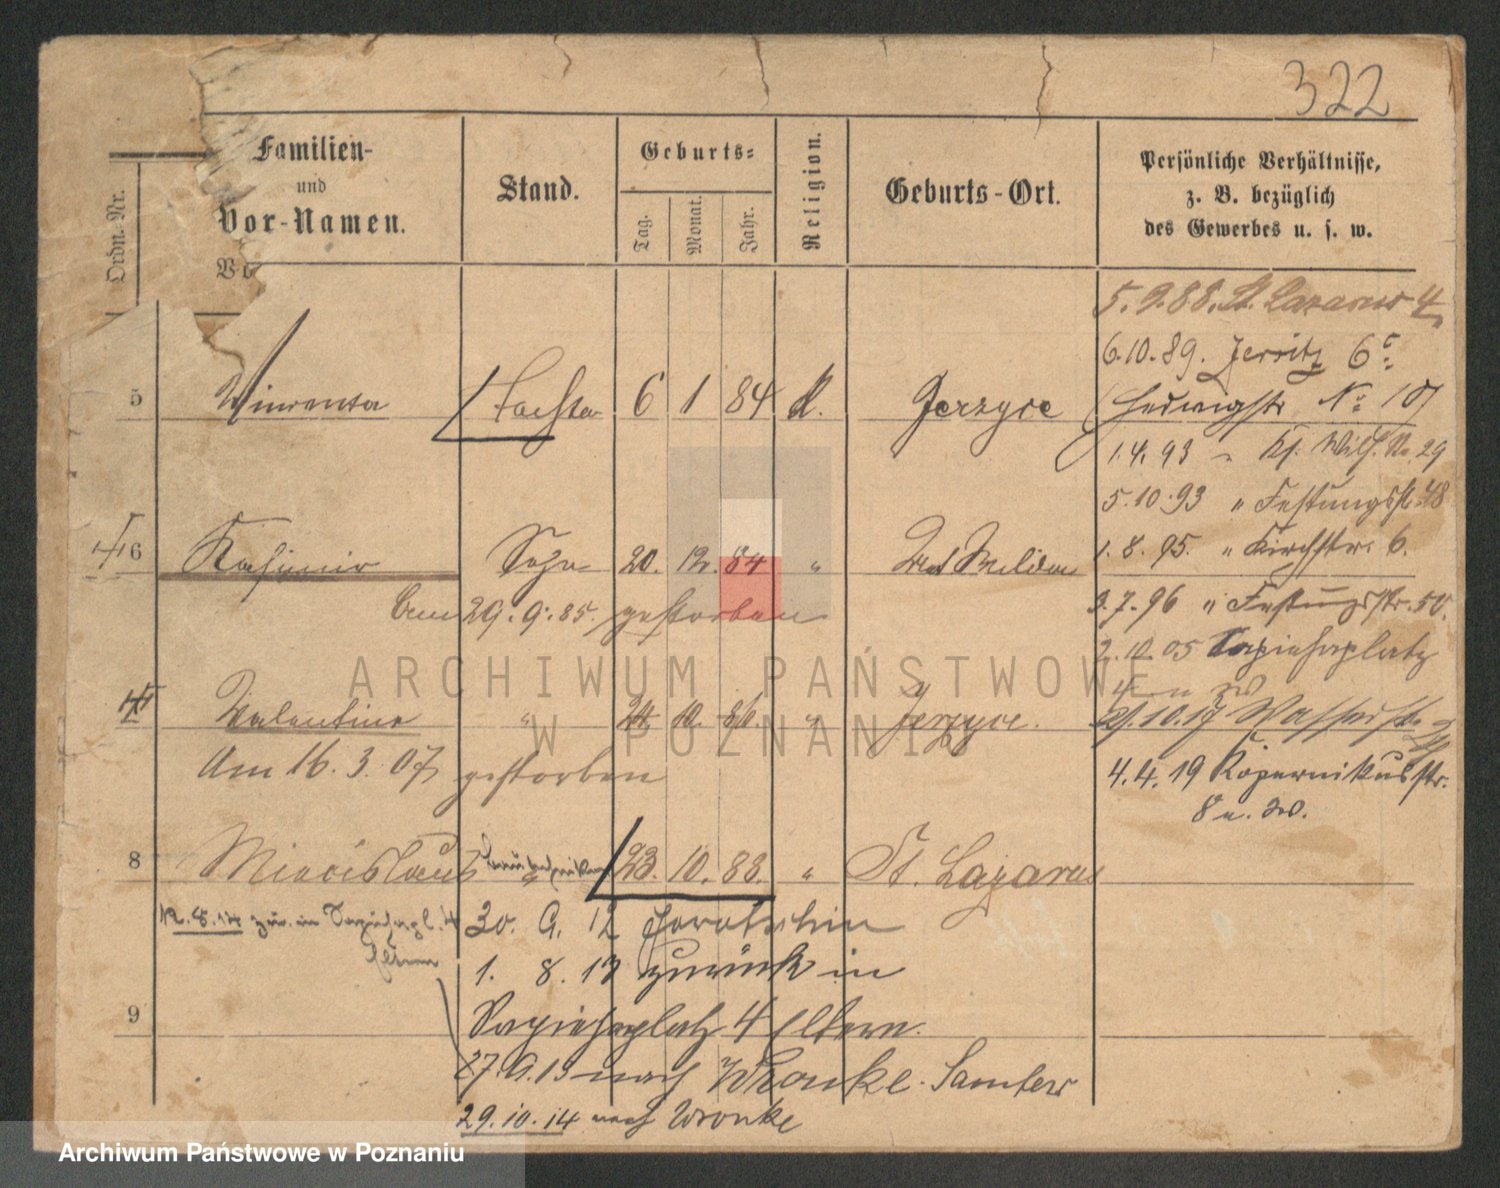 322
Ordn.-Nr.
Familien-
und
Vor-Namen.
Stand.
Geburts-
Tag.
Monat.
Jahr.
Religion.
Geburts-Ort.
Persönliche Verhältnisse,
z. B. bezüglich
des Gewerbes u. s. w.
5.9.88. St. Lazarus 4
6.10.89. Jersitz 6
5 6 1 84 K. Jerzyce Hedwigstr No 107
1.4.93 Kl. 29
5.10.93 " Festungsstr. 48
6 Kasimir Sohn 20. 12. 84 " 1.8.95. " Kirchstr. 6.
Am 29.9.85. gestorben
3.7.96 " Festungsstr. 50.
2.10.05 Sapiehaplatz
4
7 Valentine " 24. 10. 86. " Jerzyce. 21.10.17 Wasserstr.
Am 16.3.07 gestorben
4.4.19 Kopernikusstr.
8
8 Miecislaus " 23. 10. 88. " St. Lazarus
12.8.14 zur. in Sapiehapl. 4
Eltern
30. 9. 12 Jarotschin
1. 8. 13 zurück in
9 Sapiehaplatz 4 Eltern.
27.9.13 nach Wronke. Samter
29.10.14 nach Wronke
ARCHIWUM PAŃSTWOWE
W POZNANIU
Archiwum Państwowe w Poznaniu